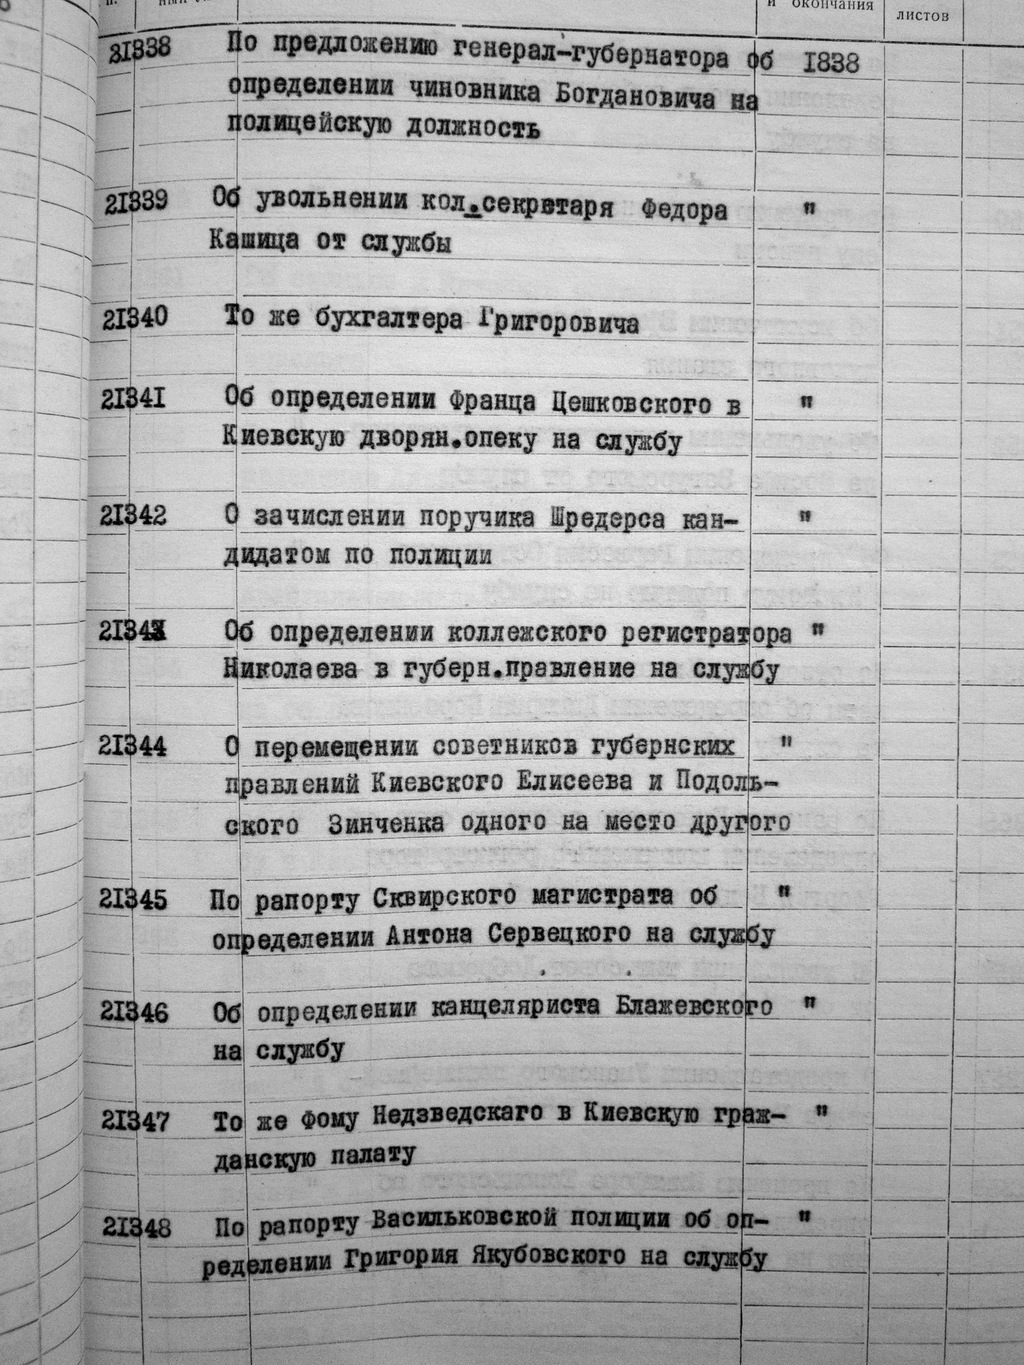 и окончания
листов
21338 По предложению генерал-губернатора об 1838
определении чиновника Богдановича на
полицейскую должность
21339 Об увольнении кол.секретаря Федора "
Кашица от службы
21340 То же бухгалтера Григоровича
21341 Об определении Франца Цешковского в "
Киевскую дворян.опеку на службу
21342 О зачислении поручика Шредерса кан- "
дидатом по полиции
21343 Об определении коллежского регистратора "
Николаева в губерн.правление на службу
21344 О перемещении советников губернских "
правлений Киевского Елисеева и Подоль-
ского Зинченка одного на место другого
21345 По рапорту Сквирского магистрата об "
определении Антона Сервецкого на службу
21346 Об определении канцеляриста Блажевского "
на службу
21347 То же Фому Недзведскаго в Киевскую граж- "
данскую палату
21348 По рапорту Васильковской полиции об оп- "
ределении Григория Якубовского на службу